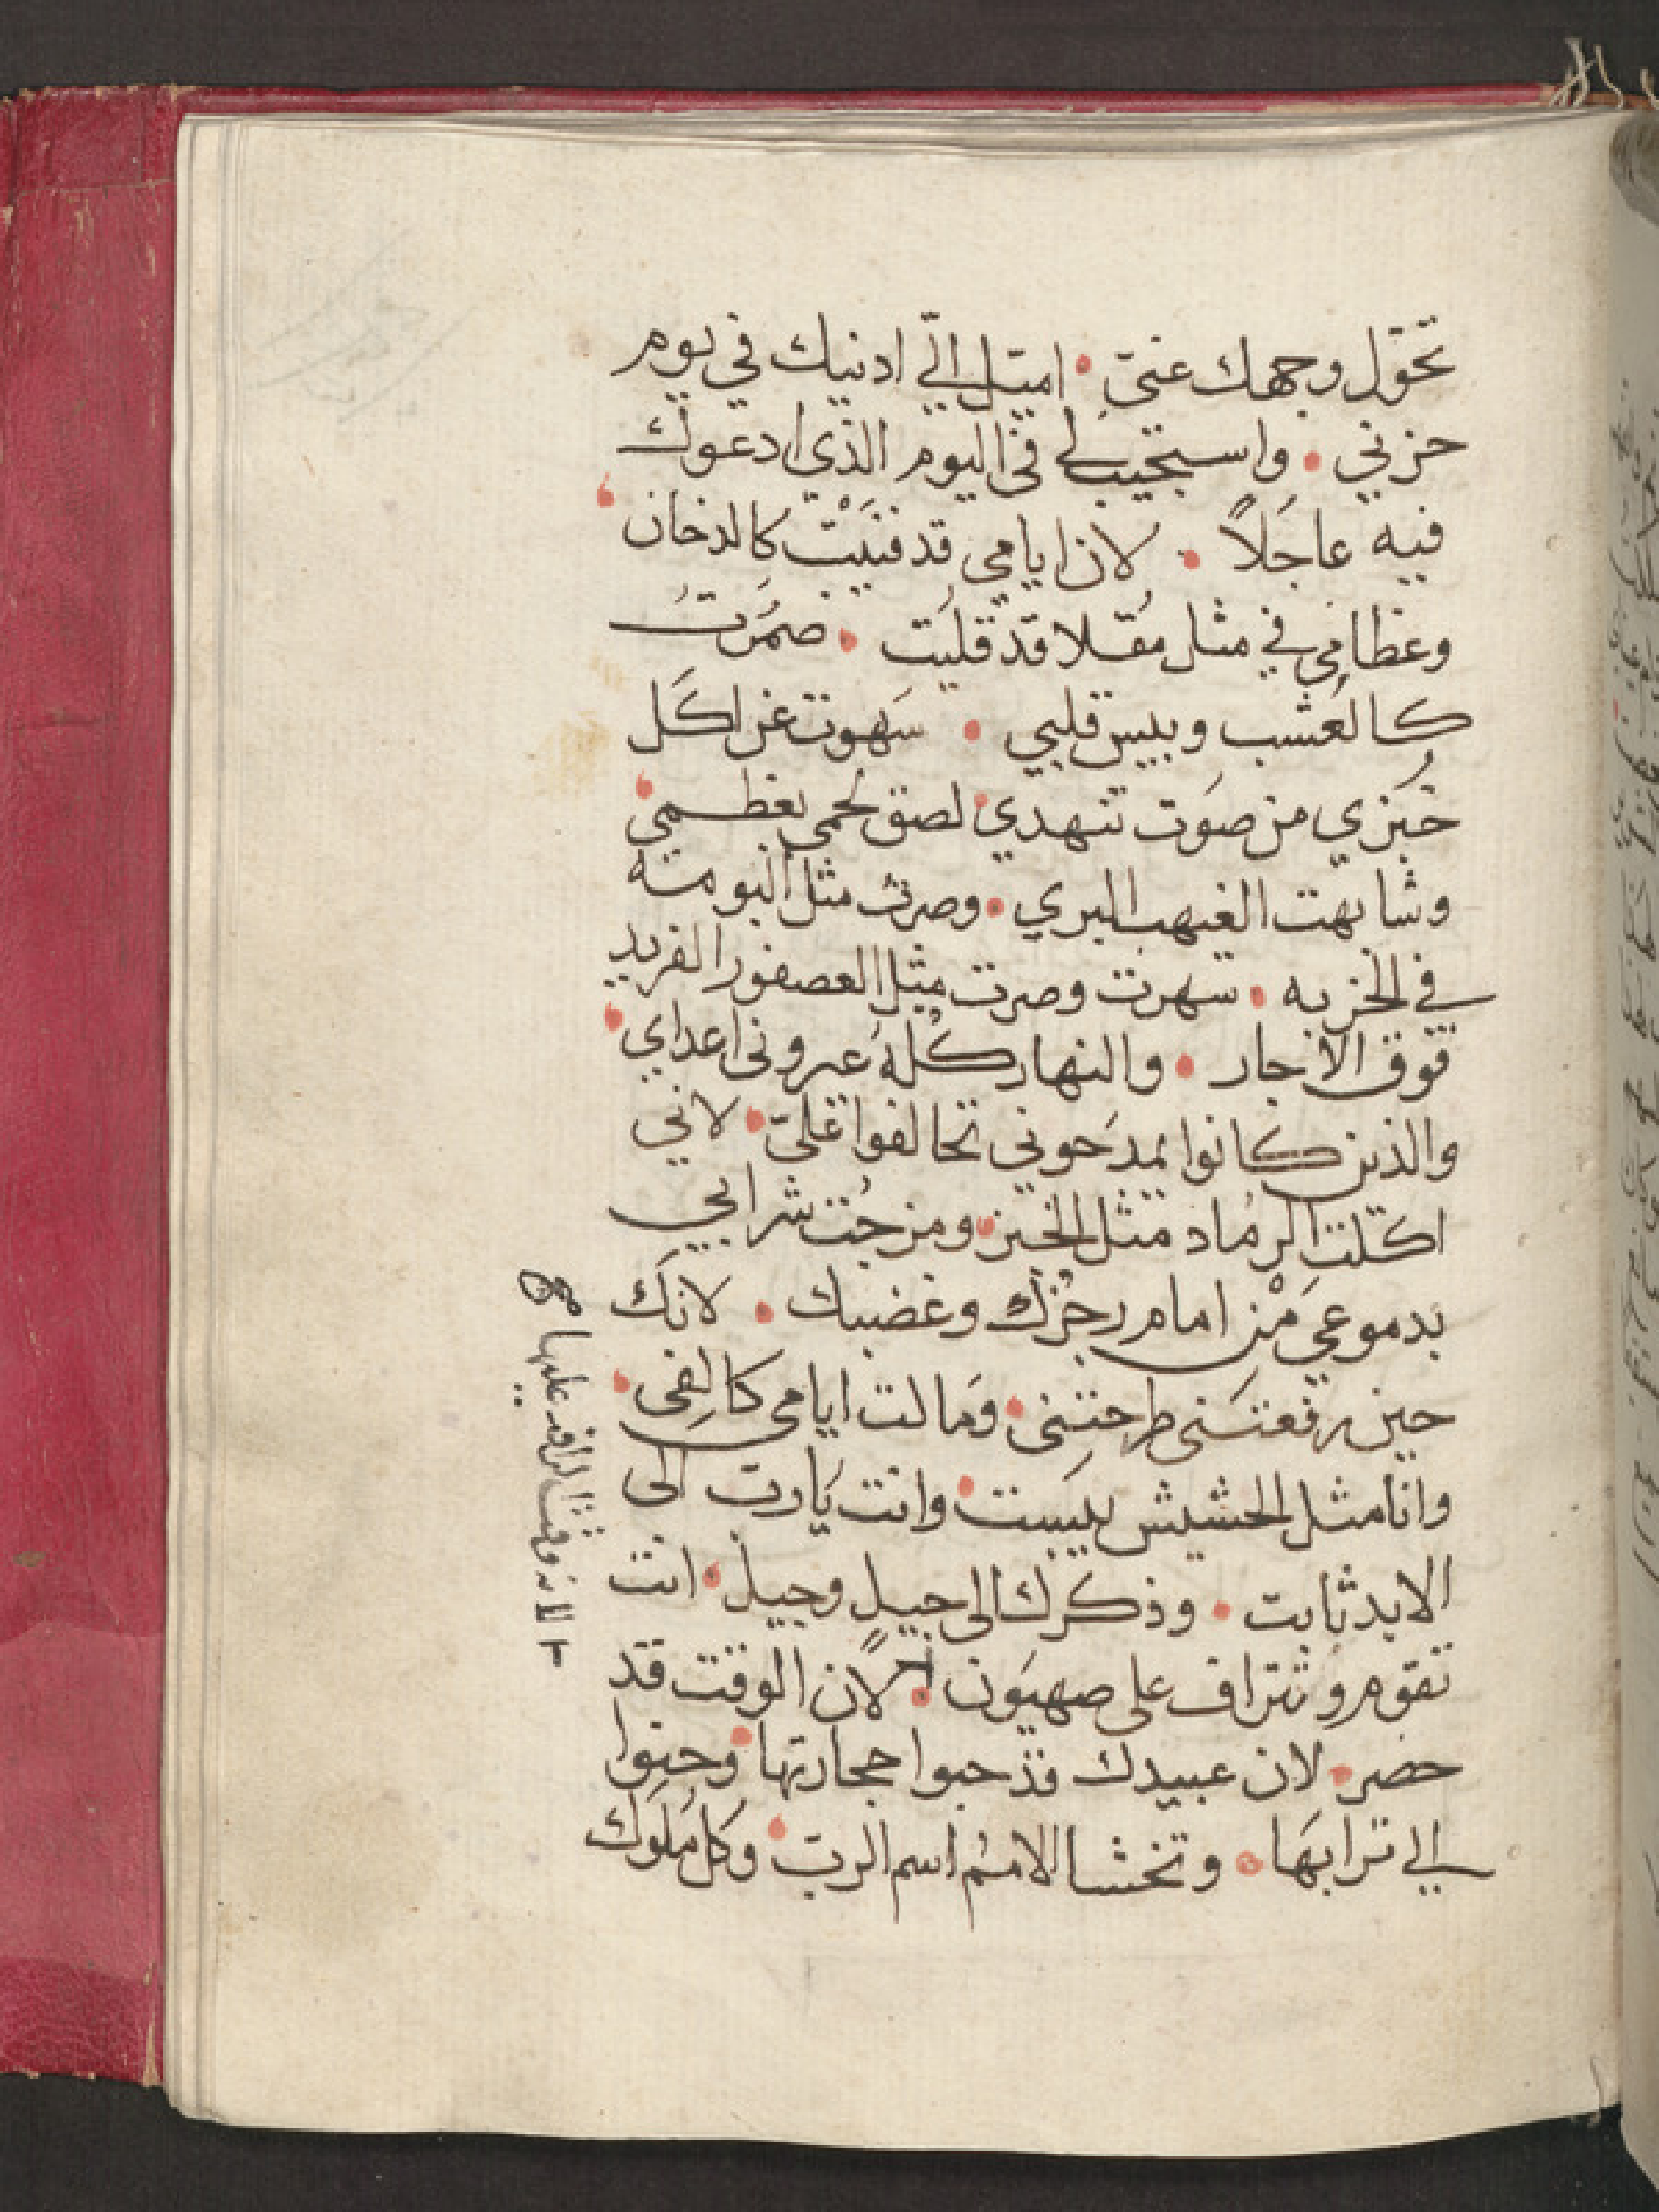 تحوّل وجهك عني • امتل اليّ ادنيك في يوم
حزني • واستجيب لي في اليوم الذي ادعوك
فيه عاجَلاً • لان ايامي قد فنيَتْ كالدخان •
وعظامي في مثل مُقلا قد قليَت • ضمَرتُ
كالعُشب ويبس قلبي • سَهوت عن اكل
خُبزي من صوَت تنهدي • لصق لحمي بعظمي •
وشابهت الغيهب البري • وصرت مثل البومه
في الخربه • سهرت وصرت مثل العصفور الفريد
فوق الاجار • والنهار كُله عيروني اعداي •
والذين كانوا يمدَحوني تحالفوا عليّ • لاني
اكلت الرماد مثل الخبز • ومزجُت شرابي
بدموعي مْن امام رجُزك وغضبك • لانَك
حين رفعتَني طرحتِني • ومَالت ايامي كالِفي •
وانا مثل الحشيش يبَست • وانت يَارب الى
الابد ثابت • وذكرك الى جيل وجيل • انت
تقوم وتتراف على صهيَون • لانً الوقت قد
حضر • لان عبيدك قد حبوا حجارتها • وحنوا
الي ترابهَا • وتخشا الامُم اسم الرب • وكل مَلوَك
لانه وقت الرافه عليها صح